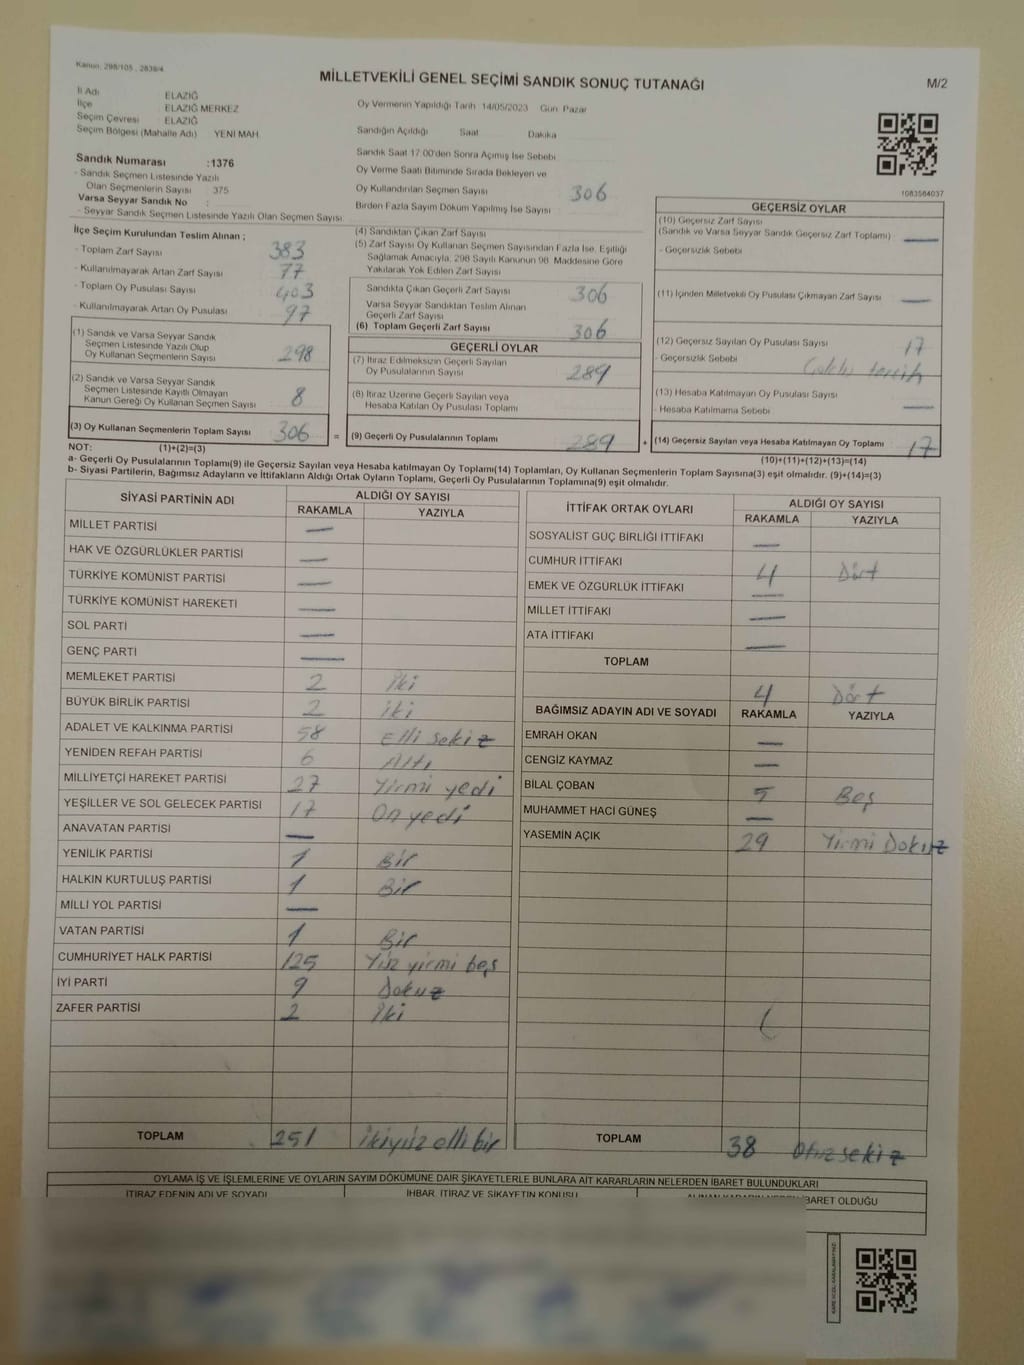 Kanun: 298/105 , 2839/4
MİLLETVEKİLİ GENEL SEÇİMİ SANDIK SONUÇ TUTANAĞI
M/2
İl Adı ELAZIĞ
İlçe ELAZIĞ MERKEZ
Seçim Çevresi ELAZIĞ
Seçim Bölgesi (Mahalle Adı) YENİ MAH.
Oy Vermenin Yapıldığı Tarih 14/05/2023 Gün Pazar
Sandığın Açıldığı Saat Dakika
Sandık Saat 17:00'den Sonra Açımış İse Sebebi
Oy Verme Saati Bitiminde Sırada Bekleyen ve
Oy Kullandırılan Seçmen Sayısı 306
Birden Fazla Sayım Döküm Yapılmış İse Sayısı
1083564037
Sandık Numarası :1376
- Sandık Seçmen Listesinde Yazılı
Olan Seçmenlerin Sayısı 375
Varsa Seyyar Sandık No :
- Seyyar Sandık Seçmen Listesinde Yazılı Olan Seçmen Sayısı
İlçe Seçim Kurulundan Teslim Alınan ;
- Toplam Zarf Sayısı 383
- Kullanılmayarak Artan Zarf Sayısı 77
- Toplam Oy Pusulası Sayısı 403
- Kullanılmayarak Artan Oy Pusulası 97
(1) Sandık ve Varsa Seyyar Sandık
Seçmen Listesinde Yazılı Olup
Oy Kullanan Seçmenlerin Sayısı 298
(2) Sandık ve Varsa Seyyar Sandık
Seçmen Listesinde Kayıtlı Olmayan
Kanun Gereği Oy Kullanan Seçmen Sayısı 8
(3) Oy Kullanan Seçmenlerin Toplam Sayısı 306 =
(4) Sandıktan Çıkan Zarf Sayısı
(5) Zarf Sayısı Oy Kullanan Seçmen Sayısından Fazla İse, Eşitliği
Sağlamak Amacıyla, 298 Sayılı Kanunun 98. Maddesine Göre
Yakılarak Yok Edilen Zarf Sayısı
Sandıkta Çıkan Geçerli Zarf Sayısı 306
Varsa Seyyar Sandıktan Teslim Alınan
Geçerli Zarf Sayısı
(6) Toplam Geçerli Zarf Sayısı 306
GEÇERLİ OYLAR
(7) İtiraz Edilmeksizin Geçerli Sayılan
Oy Pusulalarının Sayısı 289
(8) İtiraz Üzerine Geçerli Sayılan veya
Hesaba Katılan Oy Pusulası Toplamı
(9) Geçerli Oy Pusulalarının Toplamı 289 +
GEÇERSİZ OYLAR
(10) Geçersiz Zarf Sayısı
(Sandık ve Varsa Seyyar Sandık Geçersiz Zarf Toplamı) —
- Geçersizlik Sebebi
(11) İçinden Milletvekili Oy Pusulası Çıkmayan Zarf Sayısı —
(12) Geçersiz Sayılan Oy Pusulası Sayısı 17
- Geçersizlik Sebebi tercih
(13) Hesaba Katılmayan Oy Pusulası Sayısı —
- Hesaba Katılmama Sebebi
(14) Geçersiz Sayılan veya Hesaba Katılmayan Oy Toplamı 17
NOT: (1)+(2)=(3)
(10)+(11)+(12)+(13)=(14)
a- Geçerli Oy Pusulalarının Toplamı(9) ile Geçersiz Sayılan veya Hesaba katılmayan Oy Toplamı(14) Toplamları, Oy Kullanan Seçmenlerin Toplam Sayısına(3) eşit olmalıdır. (9)+(14)=(3)
b- Siyasi Partilerin, Bağımsız Adayların ve İttifakların Aldığı Ortak Oyların Toplamı, Geçerli Oy Pusulalarının Toplamına(9) eşit olmalıdır.
SİYASİ PARTİNİN ADI ALDIĞI OY SAYISI
RAKAMLA YAZIYLA
MİLLET PARTİSİ —
HAK VE ÖZGÜRLÜKLER PARTİSİ —
TÜRKİYE KOMÜNİST PARTİSİ —
TÜRKİYE KOMÜNİST HAREKETİ —
SOL PARTİ —
GENÇ PARTİ —
MEMLEKET PARTİSİ 2 iki
BÜYÜK BİRLİK PARTİSİ 2 iki
ADALET VE KALKINMA PARTİSİ 58 Elli sekiz
YENİDEN REFAH PARTİSİ 6 Altı
MİLLİYETÇİ HAREKET PARTİSİ 27 Yirmi yedi
YEŞİLLER VE SOL GELECEK PARTİSİ 17 On yedi
ANAVATAN PARTİSİ —
YENİLİK PARTİSİ 1 Bir
HALKIN KURTULUŞ PARTİSİ 1 Bir
MİLLİ YOL PARTİSİ —
VATAN PARTİSİ 1 Bir
CUMHURİYET HALK PARTİSİ 125 Yüz yirmi beş
İYİ PARTİ 9 Dokuz
ZAFER PARTİSİ 2 İki
TOPLAM 251 ikiyüz elli bir
İTTİFAK ORTAK OYLARI ALDIĞI OY SAYISI
RAKAMLA YAZIYLA
SOSYALİST GÜÇ BİRLİĞİ İTTİFAKI —
CUMHUR İTTİFAKI 4 Dört
EMEK VE ÖZGÜRLÜK İTTİFAKI —
MİLLET İTTİFAKI —
ATA İTTİFAKI —
TOPLAM
4 Dört
BAĞIMSIZ ADAYIN ADI VE SOYADI RAKAMLA YAZIYLA
EMRAH OKAN —
CENGİZ KAYMAZ —
BİLAL ÇOBAN 5 Beş
MUHAMMET HACİ GÜNEŞ —
YASEMİN AÇIK 29 Yirmi Dokuz
TOPLAM 38 Otuz sekiz
OYLAMA İŞ VE İŞLEMLERİNE VE OYLARIN SAYIM DÖKÜMÜNE DAİR ŞİKAYETLERLE BUNLARA AİT KARARLARIN NELERDEN İBARET BULUNDUKLARI
İTİRAZ EDENİN ADI VE SOYADI İHBAR, İTİRAZ VE ŞİKAYETİN KONUSU İBARET OLDUĞU